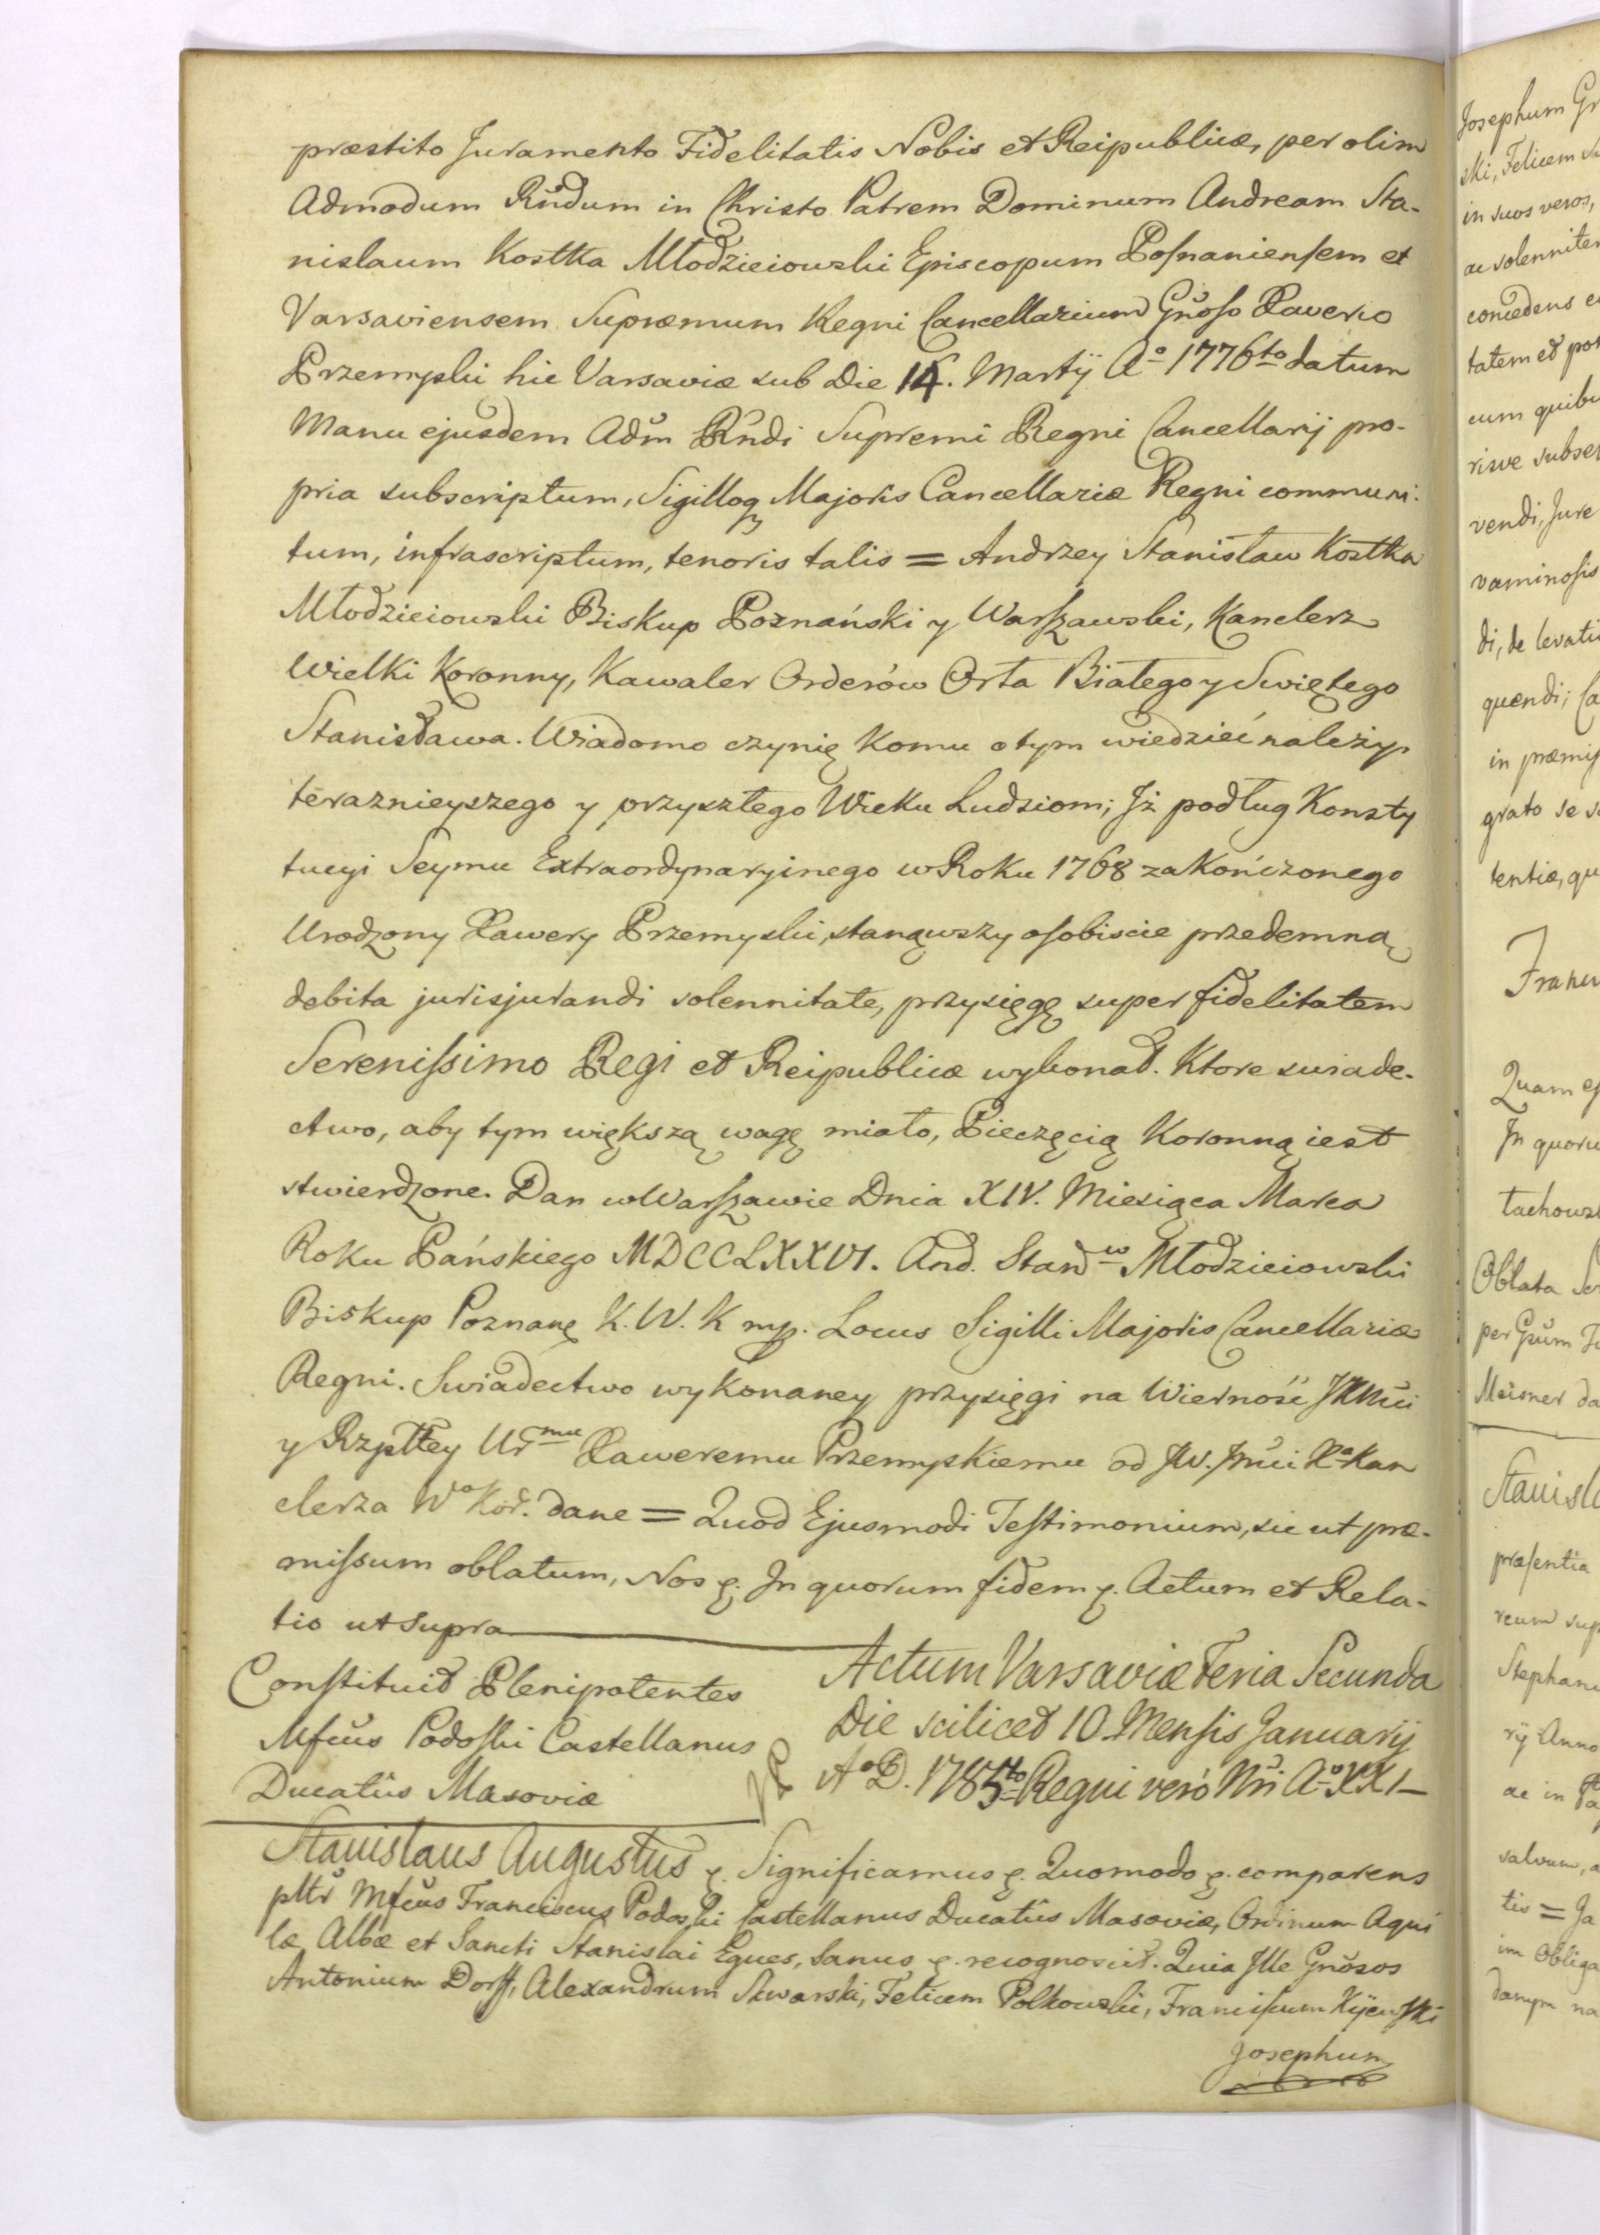 præstito Juramento Fidelitatis Nobis et Reipublicæ, per olim
Admodum Rñdum in Christo Patrem Dominum Andream Sta-
nislaum Kostka Młodzieiowski Episcopum Posnaniensem et
Varsaviensem Supræmum Regni Cancellarium Gñoso Xaverio
Przemyski hic Varsaviæ sub Die 14. Martÿ Aº 1776to datum
Manu ejusdem Adm Rñdi Supremi Regni Cancellarÿ pro-
pria subscriptum, Sigilloq Majoris Cancellariæ Regni communi-
tum, infrascriptum, tenoris talis = Andrzey Stanisław Kostka
Młodzieiowski Biskup Poznański y Warszawski, Kanclerz
Wielki Koronny, Kawaler Orderów Orła Białego y Swiętego
Stanisława. Wiadomo czynię komu o tym wiedzieć należy,
teraznieyszego y przyszłego Wieku Ludziom; Jż podług Konsty
tucyi Seymu Extraordynaryinego w Roku 1768 zakończonego
Urodzony Xawery Przemyski, stanąwszy osobiscie przedemną
debita jurisjurandi solennitate, przysięgę super fidelitatem
Serenissimo Regi et Reipublicæ wykonał. Ktore swiade-
ctwo, aby tym większą wagę miało, Pieczęcią Koronną iest
stwierdzone. Dan w Warszawie Dnia XIV. Miesiąca Marca
Roku Pańskiego MDCCLXXVI. And. Stanw Młodzieiowski
Biskup Poznan K. W. K mp. Locus Sigilli Majoris Cancellariæ
Regni. Swiadectwo wykonaney przysięgi na Wierność JKMci
y Rzpltey Urmu Xaweremu Przemyskiemu od JW. Jmci Xa Kan
clerza Wo Kor. dane = Quod Ejusmodi Testimonium, sic ut præ-
missum oblatum, Nos g. In quorum fidem g. Actum et Rela-
tio ut supra
Constituit Plenipotentes
Mfcus Podoski Castellanus
Ducatûs Masoviæ
Actum Varsaviæ Feria Secunda
Die scilicet 10. Mensis Januarÿ
Aº D. 1785to Regni verò Nri Aº XXI
Stanislaus Augustus g. Significamus g. Quomodo g. comparens
pltr Mfcus Franciscus Podoski Castellanus Ducatûs Masoviæ, Ordinum Aqui
læ Albæ et Sancti Stanislai Eques, Sanus g. recognovit. Quia Ille Gñosos
Antonium Dorff, Alexandrum Skwarski, Felicem Polkowski, Franciscum Kÿewski
Josephum